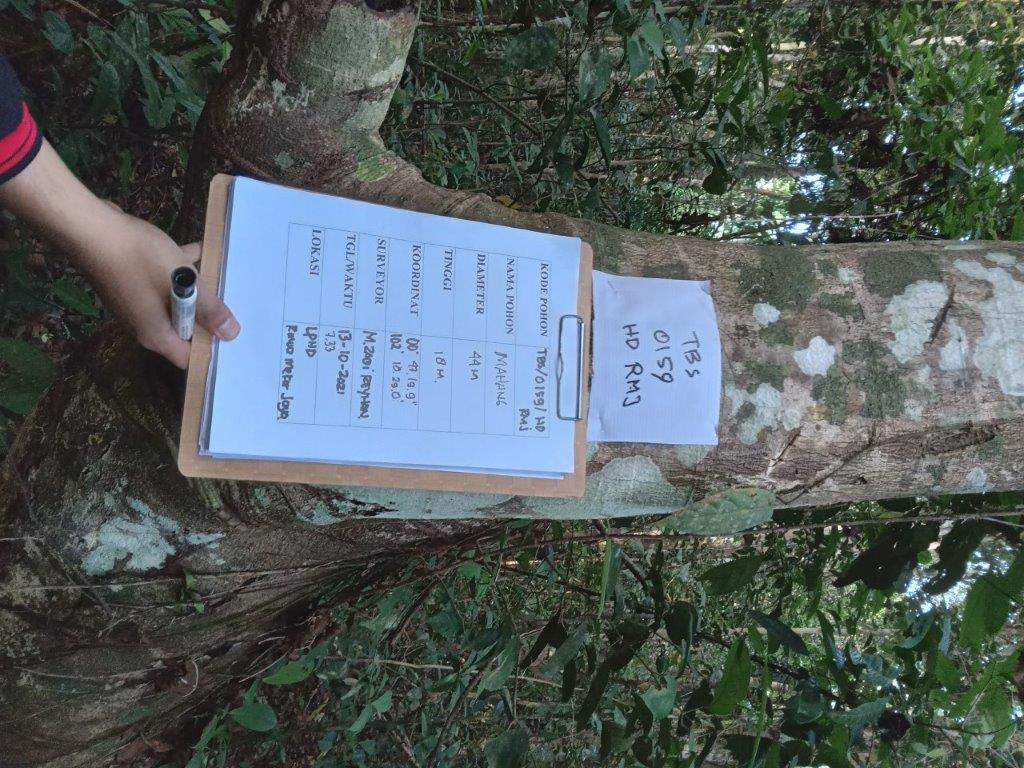 TBS
0159
HD RMJ
KODE POHON TBS/0159/ HD
RMJ
NAMA POHON MAHANG
DIAMETER 44 M
TINGGI 18 M.
KOORDINAT 00° 47,19.9"
102° 10.29.0'
SURVEYOR M.ZABI REYHAN
TGL/WAKTU 13-10-2021
7.33
LOKASI LPHD
Rawa Mekar Jaya